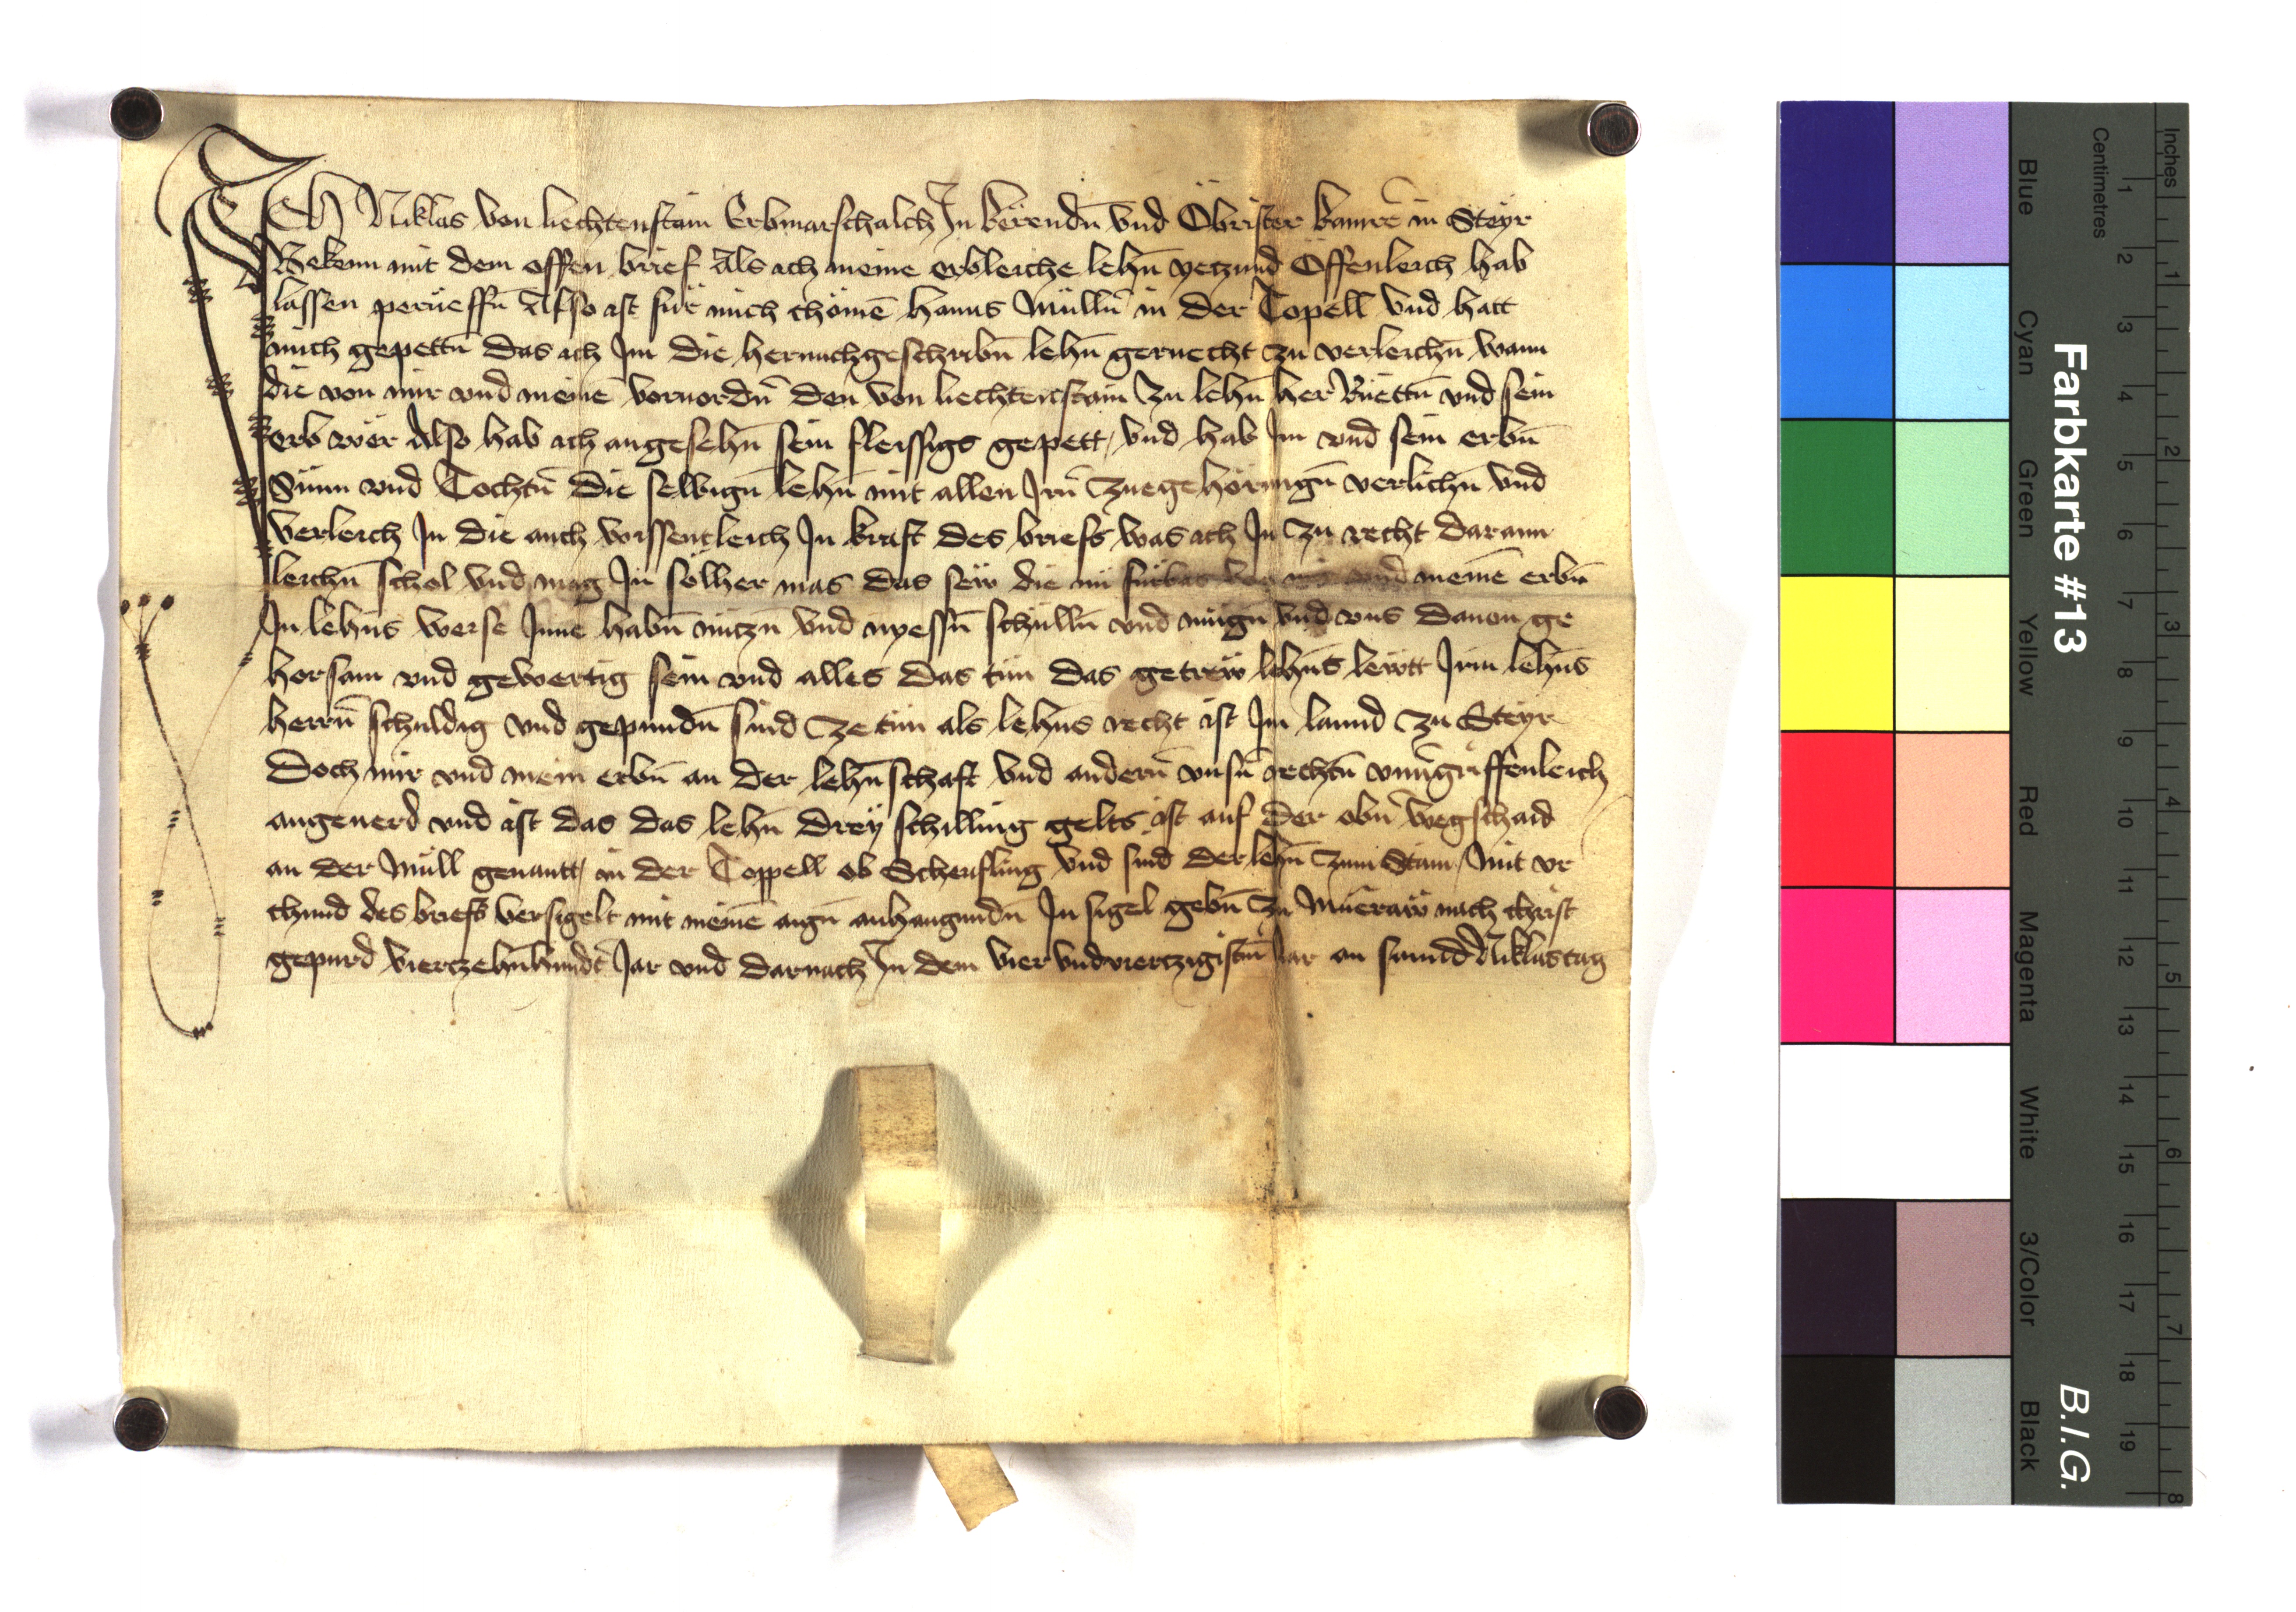 ICH Niklas von liechtenstain Erbmarschalch In kerendn̄ vnd Öbrister kamrē in Steyr
Bekenn mit dem offen brief Als ich meine erbleiche lehn̄ yetzund Öffenleich hab
lassen perueffn̄ Also ist für mich chömē hanns Mülln̄ in der Topell vnd hatt
mich gepettn̄ das ich Im die hernachgeschribn̄ lehn̄ geruecht zu verleichn̄ wann
die von mir vnd meinē voruordn̄ den von liechtenstain zu lehn̄ her Rüettn̄ vnd sein
erb wër Also hab ich angesehn̄ sein fleissigs gepett, vnd hab Im vnd sein erbn̄
Sünn vnd Tochtn̄ die selbign̄ lehn̄ mit allen Irn̄ zuegehörungn̄ verlichn̄ vnd
verleich In die auch wissentleich In kraft des briefs was ich In zu recht darann
leichn̄ schol vnd mag In sölher mas das sew die nu fürbas von mir vnd meinē erbn̄
In lehns weise Inne habn̄ nützn̄ vnd nyessn̄ schulln̄ vnd mügn̄ vnd vns dauon ge
horsam vnd gewertig sein vnd alles das tün das getrew lehns lewtt Irm lehns
herrn̄ schuldig vnd gepundn̄ sind ze tün als lehns recht ist Im lannd zu Steyr
Doch mir vnd mein erbn̄ an der lehn̄schaft vnd andern̄ vnsn̄ rechtn̄ vnuergriffenleich
angeuerd vnd ist das das lehn̄ drey schilling gelts ist auf der obn̄ wegschaid
an der Müll genantt, in der Toppell ob Scheufling vnd sind der lehn̄ zum Stain, Mit vr
chund des briefs versigelt mit meinē aign̄ anhangundn̄ In sigel gebn̄ zu Mueraw nach christ
gepurd vierzehn̄hundt̄ Jar vnd darnach In dem vier vnd viertzigistn̄ Jar an sannd Niklastag
Farbkarte #13
B.I.G.
Blue
Cyan
Green
Yellow
Red
Magenta
White
3/Color
Black
Centimetres
1 2 3 4 5 6 7 8 9 10 11 12 13 14 15 16 17 18 19
Inches
1 2 3 4 5 6 7 8